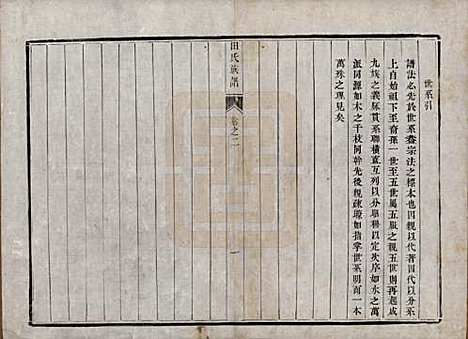 世系引
譜法必先於世系蓋宗法之標本也因親以代著因代以分系
上自始祖下至裔孫一世至五世屬五服之親五世則再起成
九族之義脈貫系聯橫直互列以分畢聯以定次序如水之萬
派同源如木之千枝同幹先後親疎瞭如指掌世系明而一本
萬殊之理見矣
田氏族譜
卷之二
一